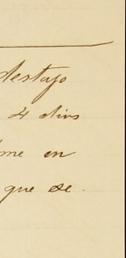 destajo
4 dias
me en
que se